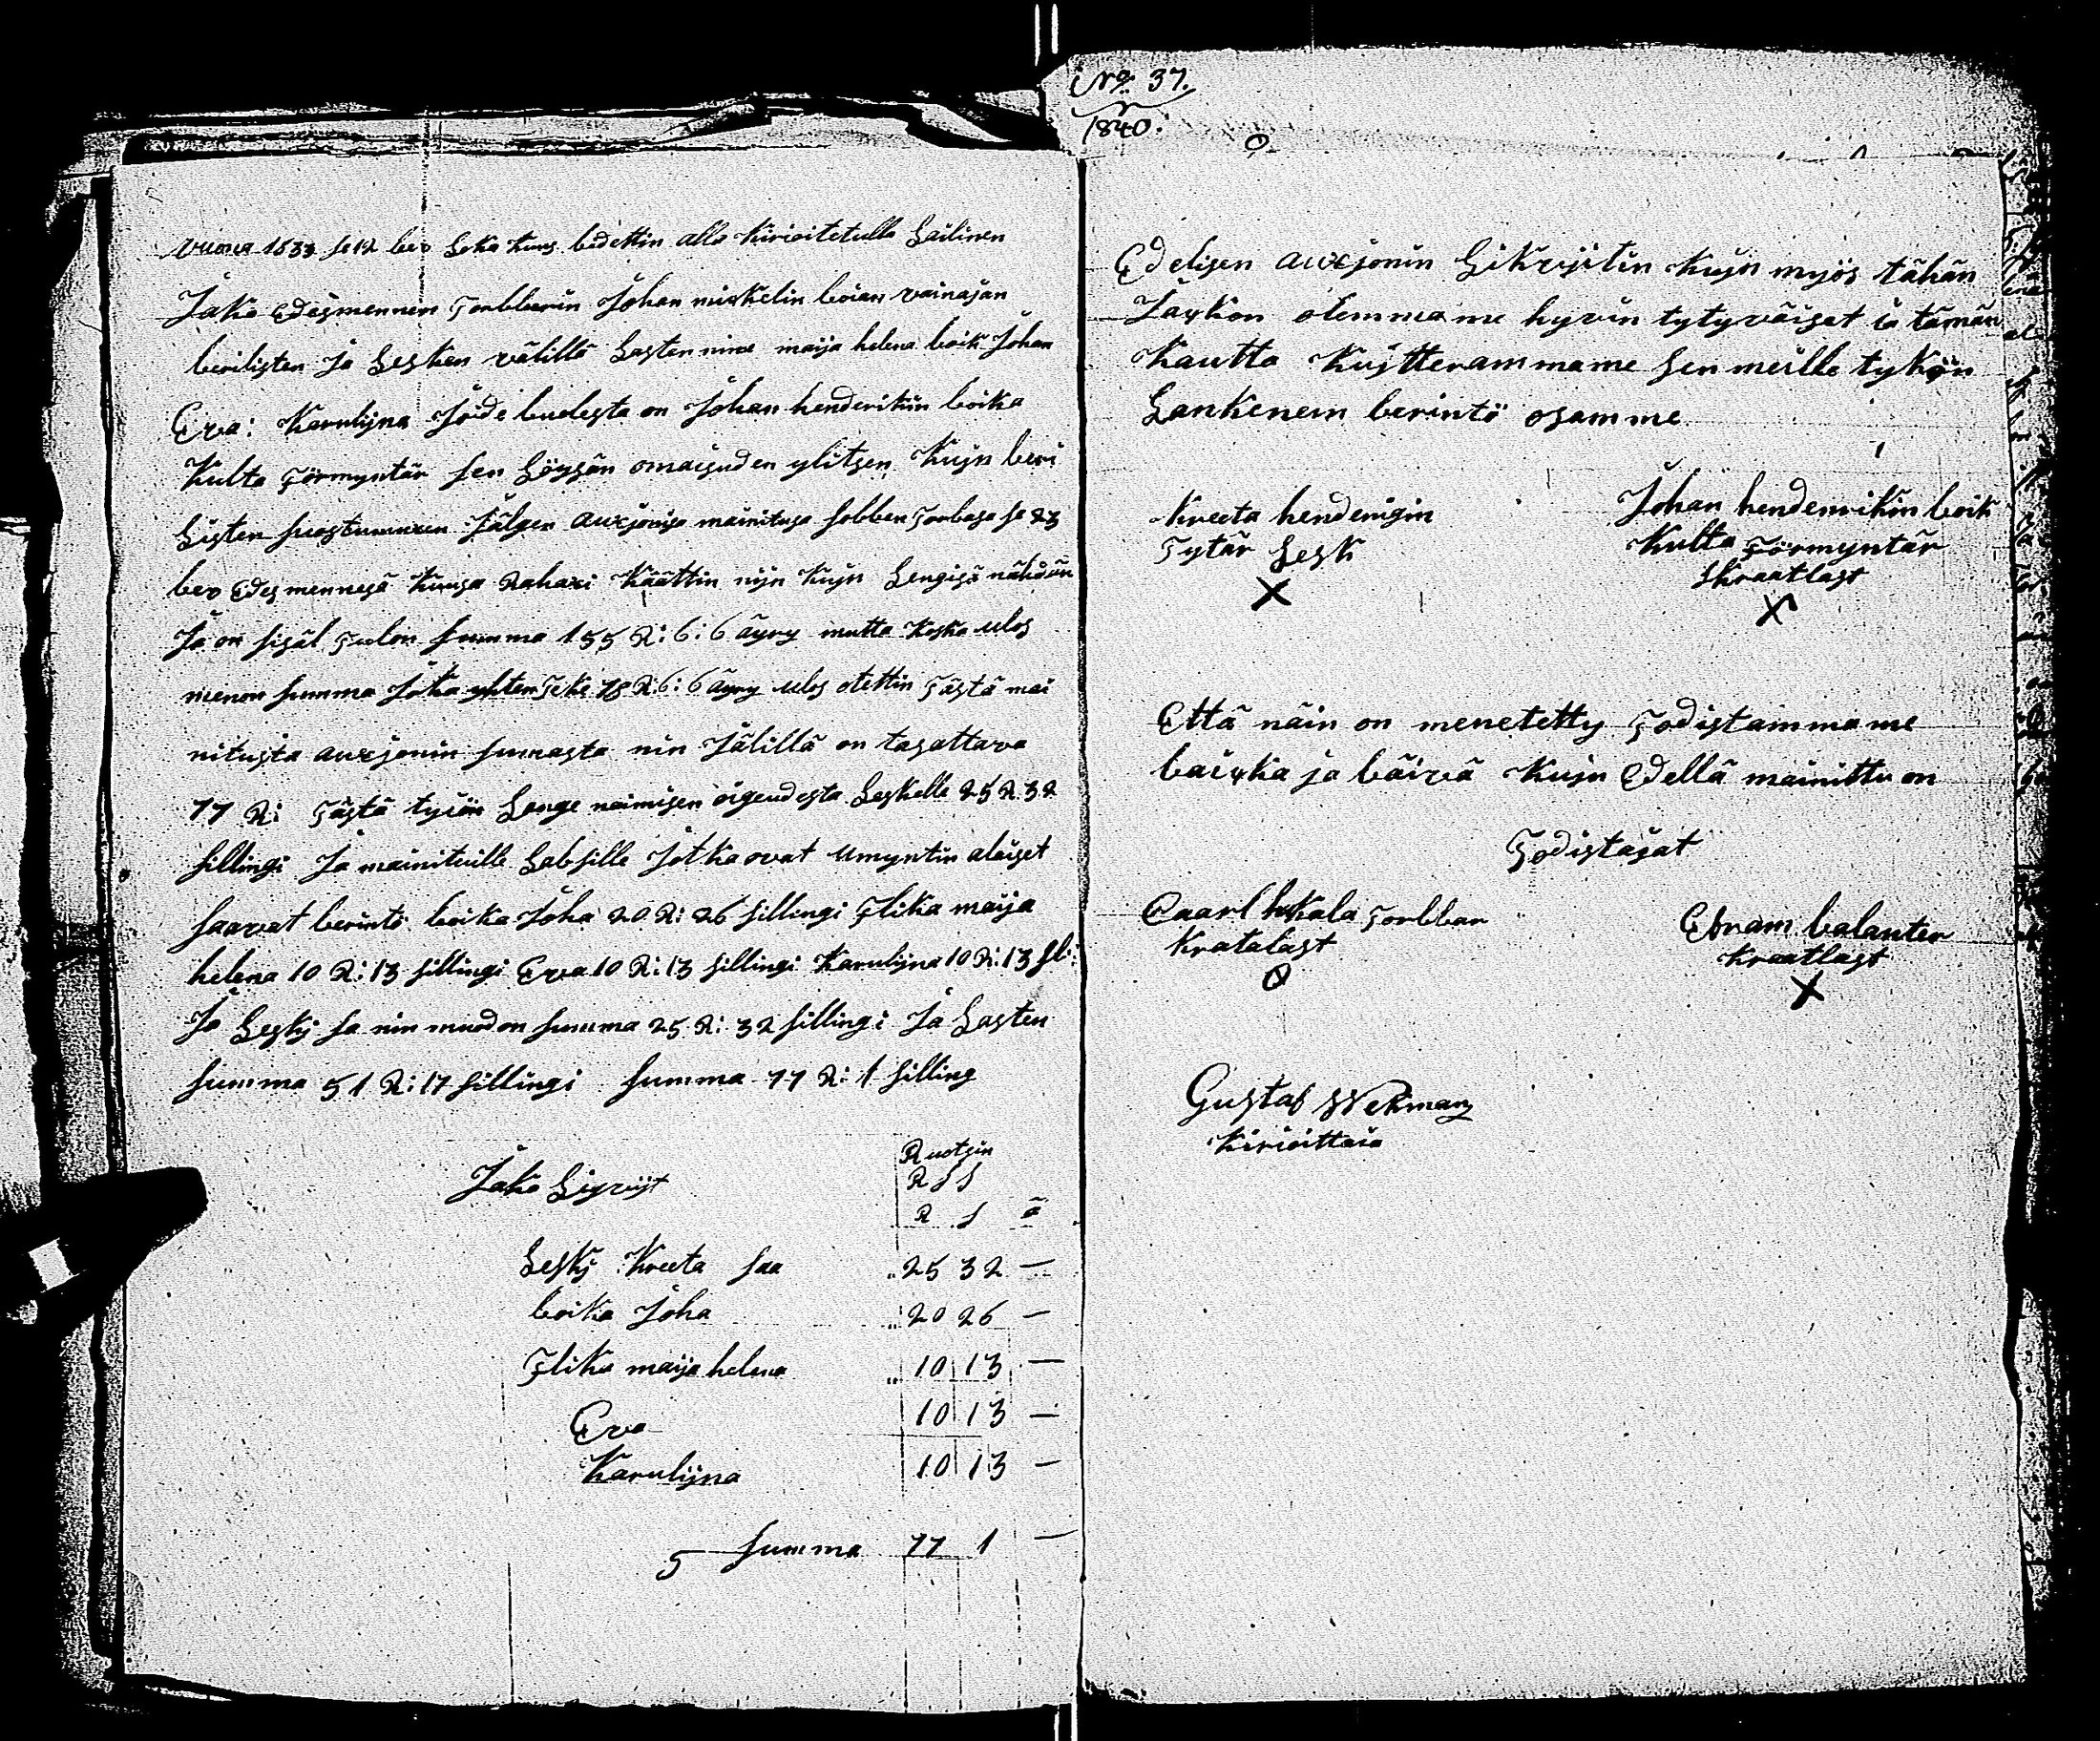 vuona 1833 se 12 bev Loka kuus bidettin alla kirioitetulla Lailinen
Jako Edesmennen Torbbarin Johan mickelin boian vainajan
berilisten Ja Lesken välillä Lasten nime maija helena boik Johan
Eva: Karulijna Joide buolesta on Johan henderikin boika
Kulta Förmyntär sen Löysän omaisuden ylitsen Kujn beri
Listen suostumuxen Jälgen auxjonisa mainitusa sobben Torbasa se 23
bev Edesmennesä Kuusa Rahaxi käättin nijn kujn Lengisä nähään
Ja on sisäl Tulon summa 155 R: 6: 6 äyry mutta koska ulos
menon summa Joka yhten Teke 78 R: 6: 6 äyry ulos otettin Tästä mai
nitusta auxjonin summasta nin Jälillä on tasattava
77 R: Tästä tyiön Lange naimisen oigeudesta Leskelle 25 R 32
sillingi Ja mainituille Labsille Jotka ovat umyntin alaiset
saavat berintö boika Joha 20 R: 26 sillingi Flika maija
helena 10 R: 13 sillingi Eva 10 R: 13 sillingi Karulijna 10 R: 13 sl:
Ja Leski sa nin muodon summa 25 R: 32 sillingi Ja Lasten
summa 51 R: 17 sillingi summa 77 R: 1 silling
Jako Lisvijt
Ruotsin
R S S
R S ä
Leski Kreeta saa 25 32 —
boika Joha 20 26 —
Flika maija helena 10 13 —
Eva 10 13 —
Karulijna 10 13 —
5 summa 77 1 —
No 37.
1840.
Edelisen auxjonin Likvijtin kujn myös tähän
Jaykon olemmame hyvin tytyväiset ia tämän
kautta kvjtterammame sen meille tykön
Lankenein berintö osamme
Kreeta henderigin
Tytär Lesk
X
Johan hendenrikin boik
Kulta Förmyntär
skraatlast
X
Että näin on menetetty Todistammame
baikka ja bäivä kujn Edellä mainittu on
Todistajat
Caarl hukala Torbbar
kratalast
O
Ebram balanter
kraatlast
X
Gustaf Wekman
kirioittaia